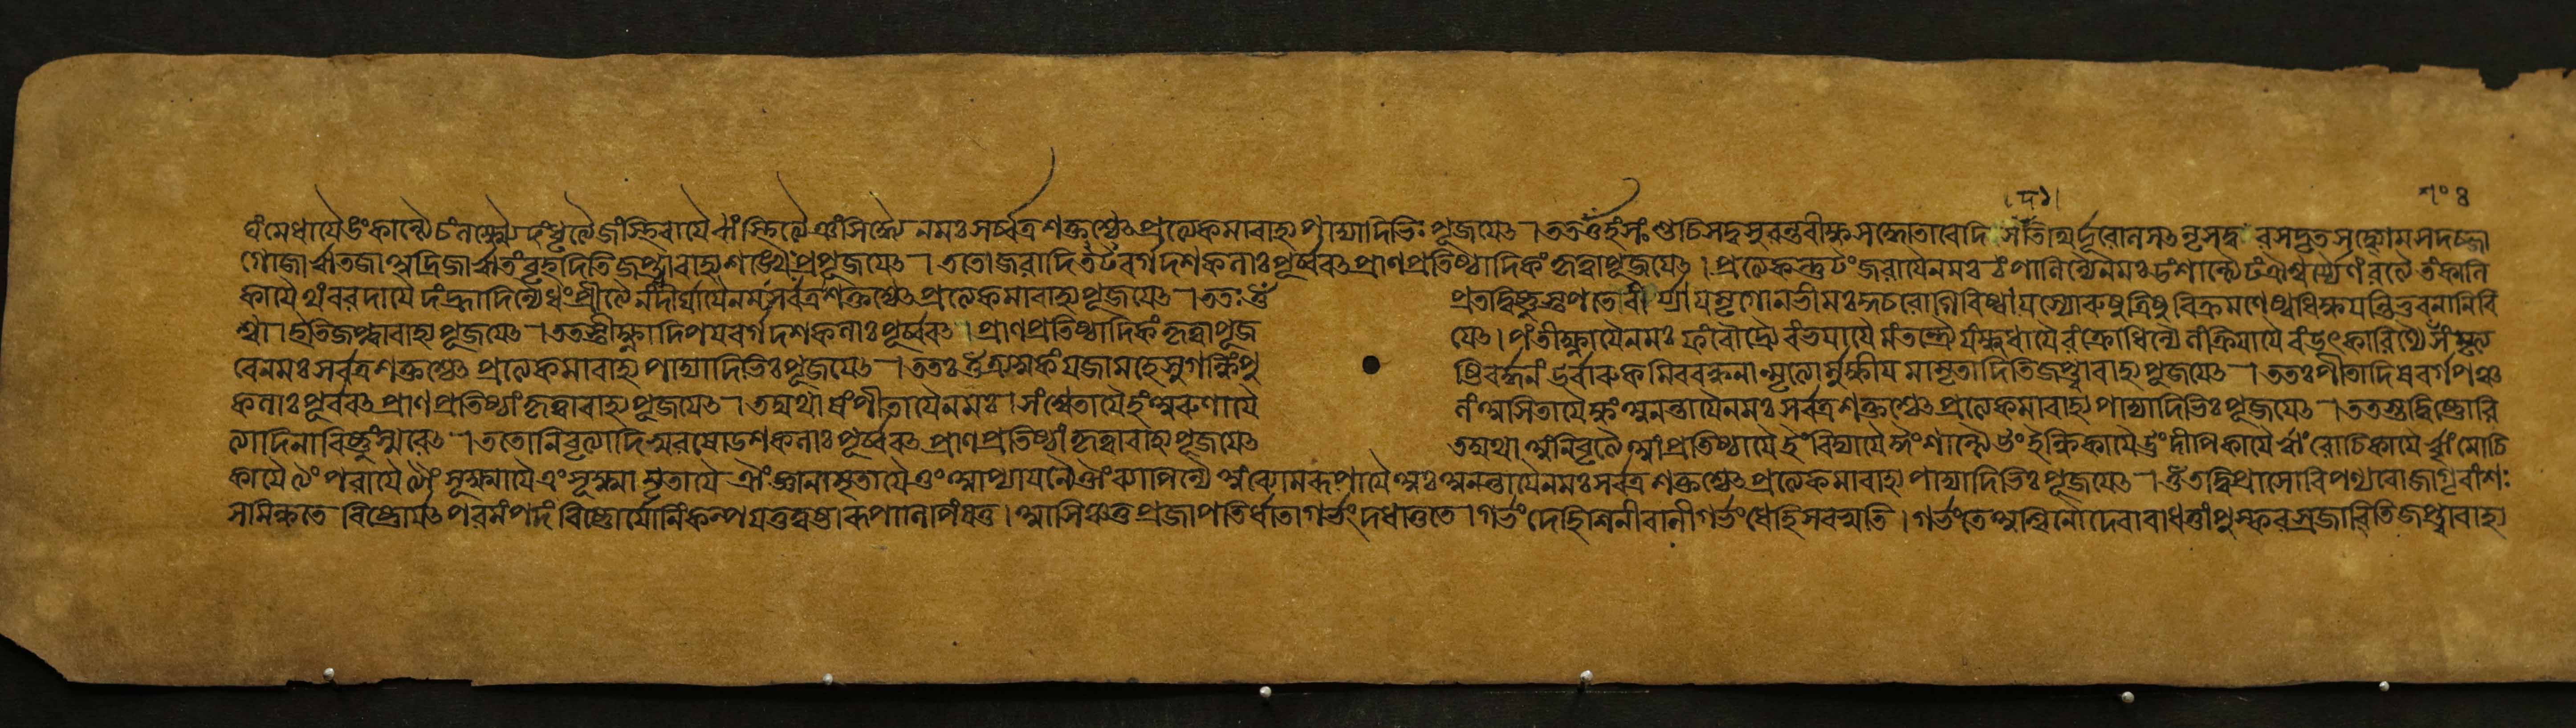 ঘংমেধায়ৈ ঙংকান্ত্যৈ চংলক্ষ্ম্যৈ ছংধৃত্যৈ জংস্থিরায়ৈ ঝংস্থিত্যৈ ঞংসিদ্ধ্যৈ নমঃ সর্ব্বত্র শক্তশ্চেৎ প্রত্যেকমাবাহ্য পাদ্যাদিভিঃ পূজয়েৎ । ততওঁহংসঃ শুচিসদ্বসুরন্তরীক্ষসদ্ধোতাবেদি নৃসদ্বরসদৃতসদ্ব্যোমসদব্জা ৭০৪
গোজাঋতজাঅদ্রিজাঋতংবৃহদিতিজপ্ত্বাবাহ্য পূজয়েৎ । ততোজরাদিটতবর্গদশকলাঃ পূর্ব্ববৎ প্রাণপ্রতিষ্ঠাদিকংকৃত্বাপূজয়েৎ । প্রত্যেকন্তু টংজরায়ৈনমঃ ঠংপালিন্যৈনমঃ ডংশান্ত্যৈ ঢংঐশ্বর্য্যৈ ণংরত্যৈ তংকামি
কায়ৈ থংবরদায়ৈ দংহ্লাদিন্যৈ ধংপ্রীত্যৈ নংদীর্ঘায়ৈনমঃ সর্ব্বত্রশক্তশ্চেৎ প্রত্যেকমাবাহ্য পূজয়েৎ । ততঃ ওঁ প্রতদ্বিষ্ণুস্তপতেবীর্য্যায়মৃগোনভীমঃ কুচরোগিরিষ্ঠাযস্যোরুষু ত্রিষু বিক্রমণেষ্বধিক্ষয়ন্তিভুবনানিবি
শ্বা । ইতিজপ্ত্বাবাহ্য পূজয়েৎ । ততস্তীক্ষ্ণাদিপয়বর্গদশকলাঃ পূর্ব্ববৎ । প্রাণপ্রতিষ্ঠাদিকংকৃত্বাপূজ য়েৎ । পংতীক্ষ্ণায়ৈনমঃ ফংরৌদ্র্যৈ বংভয়ায়ৈ ভংনিদ্রায়ৈ মংতন্দ্র্যৈ যংক্ষুধায়ৈ রংক্রোধিন্যৈ লংক্রিয়ায়ৈ বংউৎকারিণ্যৈ শংমৃত্য
বেনমঃ সর্ব্বত্রশক্তশ্চেৎ প্রত্যেকমাবাহ্য পাদ্যাদিভিঃ পূজয়েৎ । ততঃ ওঁত্র্যম্বকংযজামহেসুগন্ধিংপু ষ্টিবর্দ্ধনংউর্বারুকমিববন্ধনান্মৃত্যোর্মুক্ষীয় মামৃতাদিতিজপ্ত্বাবাহ্য পূজয়েৎ । ততঃ পীতাদিষবর্গপঞ্চ
কলাঃ পূর্ব্ববৎ প্রাণপ্রতিষ্ঠাংকৃত্বাবাহ্য পূজয়েৎ । তদ্যথা ষংপীতায়ৈনমঃ । সংশ্বেতায়ৈ হংঅরুণায়ৈ লংঅসিতায়ৈ ক্ষংঅনন্তায়ৈনমঃ সর্ব্বত্র শক্তশ্চেৎ প্রত্যেকমাবাহ্য পাদ্যাদিভিঃ পূজয়েৎ । ততস্তদ্বিষ্ণোরি
ত্যাদিনাবিষ্ণুংস্মরেৎ । ততোনিবৃত্যাদিস্বরষোডশকলাঃ পূর্ব্ববৎ প্রাণপ্রতিষ্ঠাংকৃত্বাবাহ্য পূজয়েৎ তদ্যথা অংনিবৃত্যৈ আংপ্রতিষ্ঠায়ৈ ইংবিদ্যায়ৈ ঈংশান্ত্যৈ উংইন্ধিকায়ৈ ঊংদীপিকায়ৈ ঋংরোচিকায়ৈ ৠংমোচি
কায়ৈ ঌংপরায়ৈ ৡংসূক্ষ্মায়ৈ এংসূক্ষ্মামৃতায়ৈ ঐংজ্ঞানামৃতায়ৈ ওংআপ্যায়ন্যৈ ঔংব্যাপিন্যৈ অংব্যোমরূপায়ৈ অঃঅনন্তায়ৈনমঃ সর্ব্বত্র শক্তশ্চেৎ প্রত্যেকমাবাহ্য পাদ্যাদিভিঃ পূজয়েৎ । ওঁতদ্বিপ্রাসোবিপণ্যবোজাগৃবাংশঃ
সমিন্ধতে বিষ্ণোর্যৎ পরমংপদং বিষ্ণোর্যোনিংকল্পয়তুত্বষ্টারূপাণিপিংষতু । আসিঞ্চতু প্রজাপতির্ধাতাগর্ভংদধাতুতে । গর্ভংদেহিশিনীবালীগর্ভংধেহিসরস্বতি । গর্ভংতেঅশ্বিনৌদেবাবাধত্তাংপুষ্করস্রজাবিতিজপ্ত্বাবাহ্য